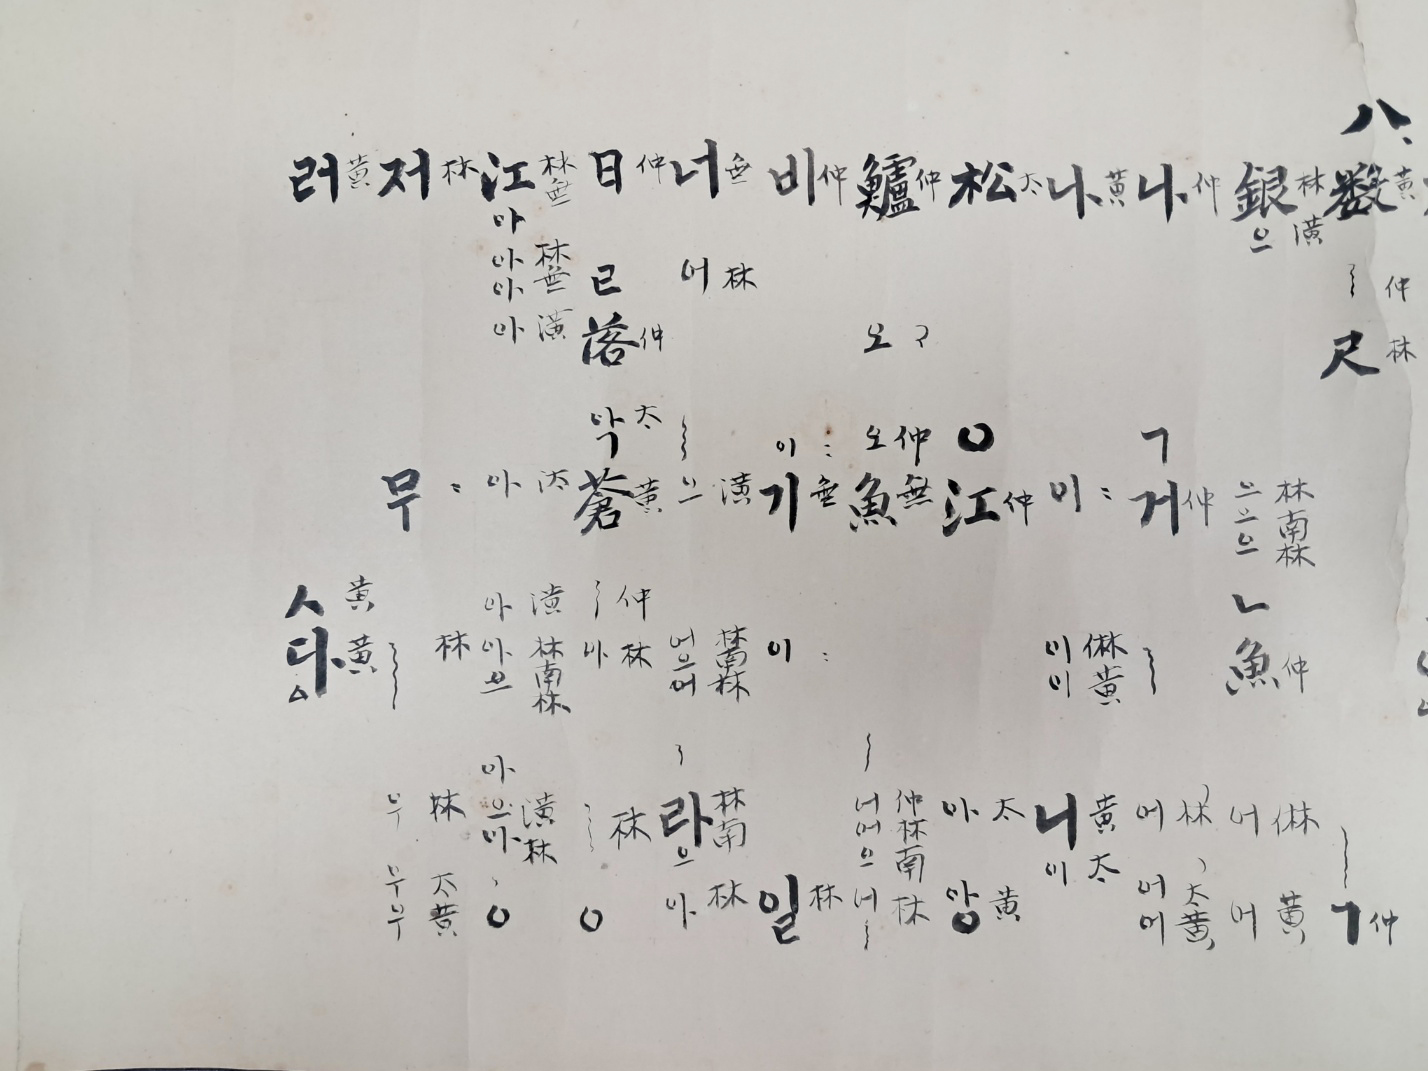 八數黃仲尺林ㄱ仲
銀林으潢으으으林南林ㄴ魚仲어㑣어黃
나仲ㄱ거仲어林어어太黃
나黃이이이㑣黃니黃이太
松太ㅇ江仲아太앙黃
鱸仲오오仲魚無너어으仲林南너林
비仲이기無이일林
너無어林으潢어으어林南林라林南으아林
日仲已落仲악太蒼黃仲아林林ㅇ
江林無아아아林無아潢아汰아潢아으林南林아으아潢林ㅇ
저林무林우林우우太黃
러黃ㅅ黃다黃